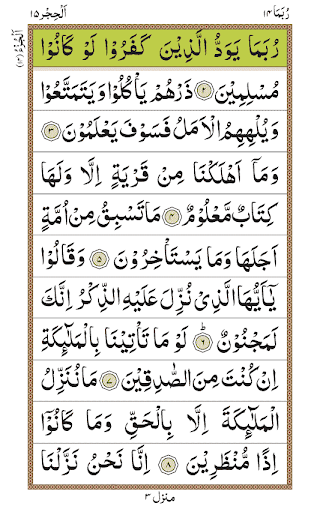 رُبَمَا ١٤
اَلْحِجْر ١٥
اَلْجُزْءُ (١٤)
رُبَمَا يَوَدُّ الَّذِيْنَ كَفَرُوْا لَوْ كَانُوْا
مُسْلِمِيْنَ ۝٢ ذَرْهُمْ يَاْكُلُوْا وَيَتَمَتَّعُوْا
وَيُلْهِهِمُ الْاَمَلُ فَسَوْفَ يَعْلَمُوْنَ ۝٣
وَمَاۤ اَهْلَكْنَا مِنْ قَرْيَةٍ اِلَّا وَلَهَا
كِتَابٌ مَّعْلُوْمٌ ۝٤ مَا تَسْبِقُ مِنْ اُمَّةٍ
اَجَلَهَا وَمَا يَسْتَاْخِرُوْنَ ۝٥ وَقَالُوْا
يٰۤاَيُّهَا الَّذِيْ نُزِّلَ عَلَيْهِ الذِّكْرُ اِنَّكَ
لَمَجْنُوْنٌ ؕ۝٦ لَوْ مَا تَاْتِيْنَا بِالْمَلٰٓئِكَةِ
اِنْ كُنْتَ مِنَ الصّٰدِقِيْنَ ۝٧ مَا نُنَزِّلُ
الْمَلٰٓئِكَةَ اِلَّا بِالْحَقِّ وَمَا كَانُوْۤا
اِذًا مُّنْظَرِيْنَ ۝٨ اِنَّا نَحْنُ نَزَّلْنَا
منزل ٣